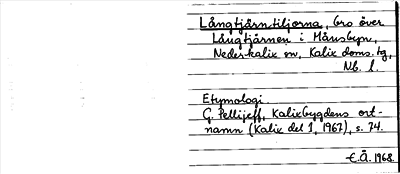 Långtjärntiljorna, bro över
Långtjärnen i Månsbyn,
Nederkalix sn, Kalix doms. tg,
Nb. l.
Etymologi.
G. Pellijeff, Kalixbygdens ort-
namn (Kalix del 1, 1967), s. 74.
E.Å. 1968